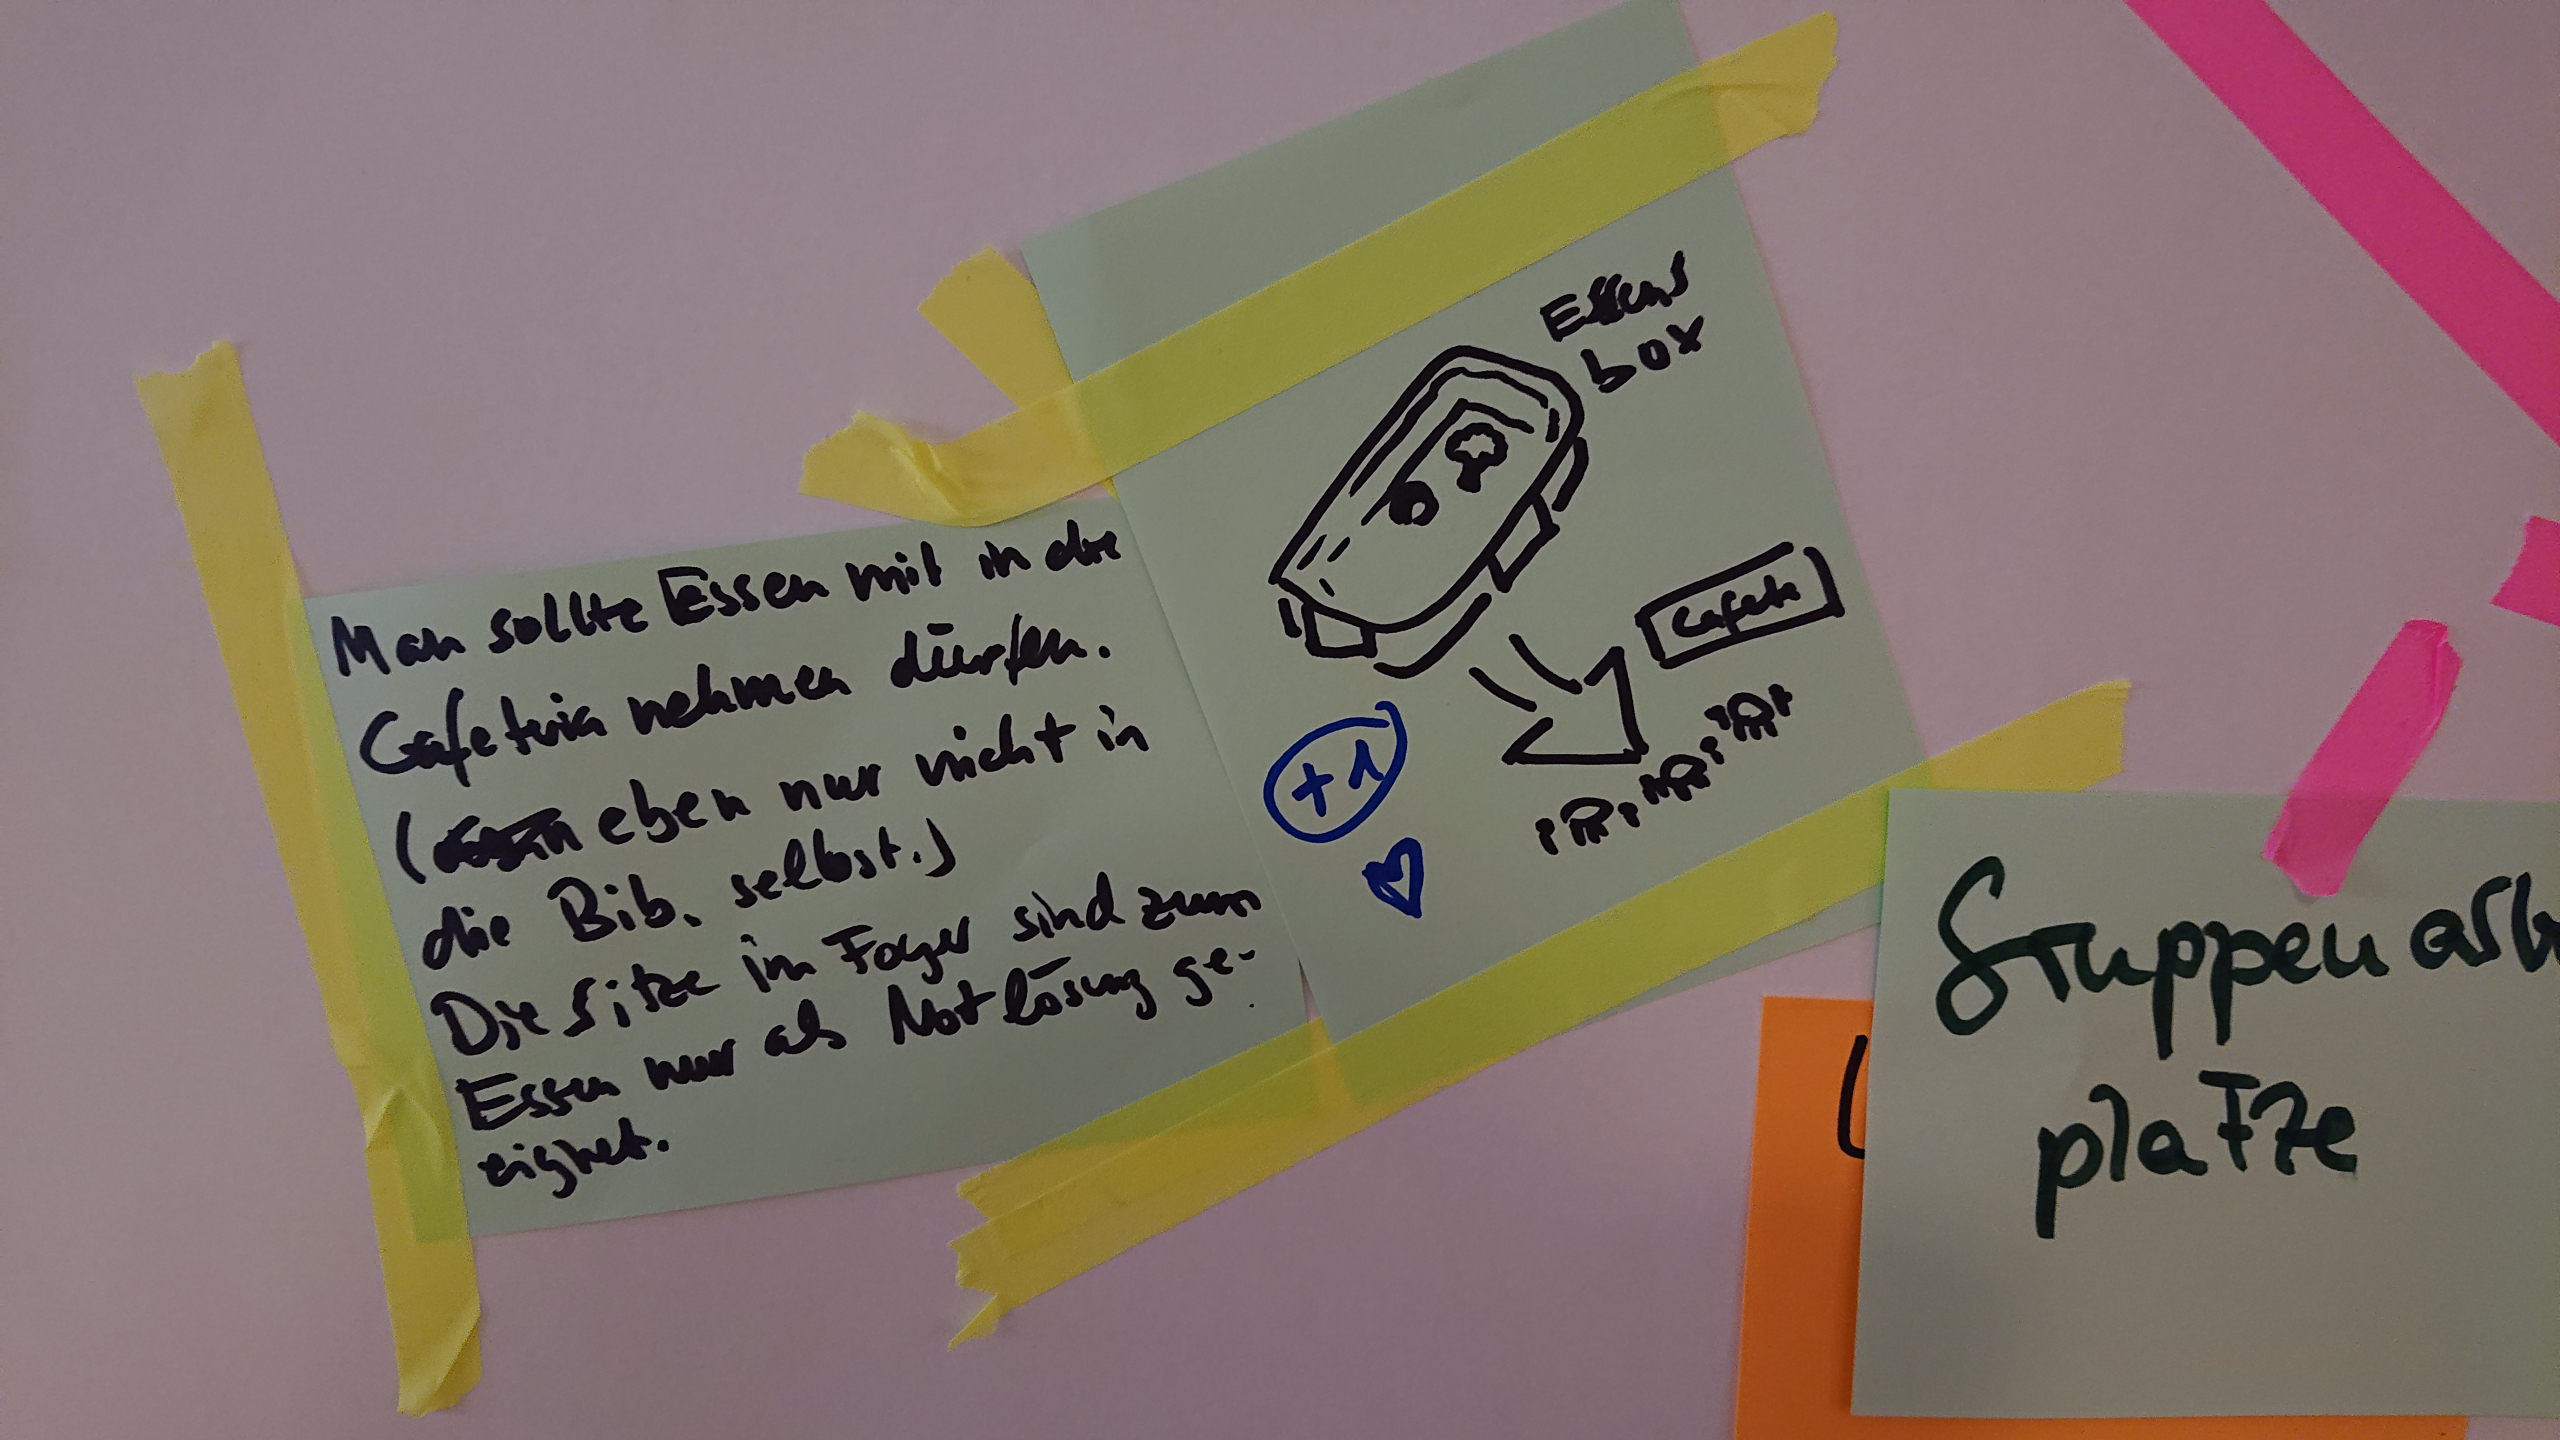 Man sollte Essen mit in die
Cafeteria nehmen dürfen.
(eben nur nicht in
die Bib. selbst.)
Die Sitze im Foyer sind zum
Essen nur als Notlösung ge-
eignet.
Essens
box
Cafete
+1
Gruppenarb
plätze